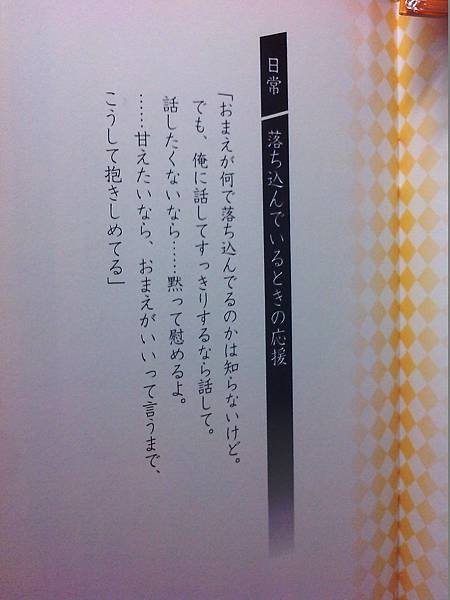 日常
落ち込んでいるときの応援
「おまえが何で落ち込んでるのかは知らないけど。
でも、俺に話してすっきりするなら話して。
話したくないなら……黙って慰めるよ。
……甘えたいなら、おまえがいいって言うまで、
こうして抱きしめてる」